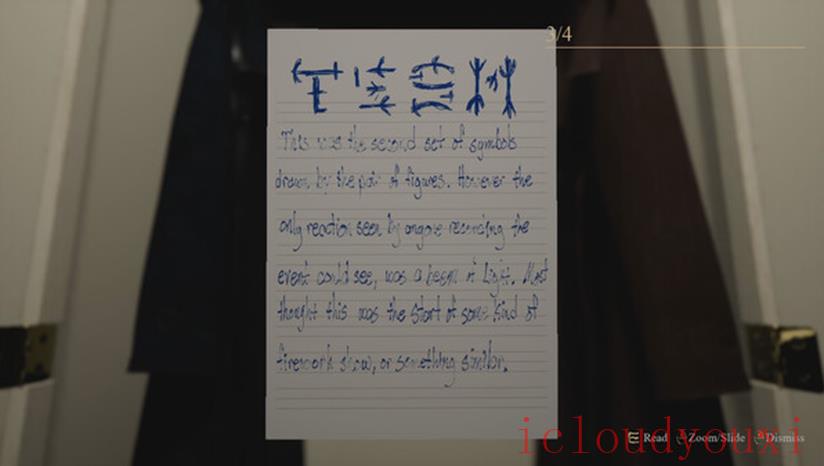 3/4
This was the second set of symbols
drawn by the pair of figures. However the
only reaction seen by anyone recording the
event could see, was a beam of Light. Most
thought this was the start of some kind of
firework show, or something similar.
icloudyouxi
Read Zoom/Slide Dismiss